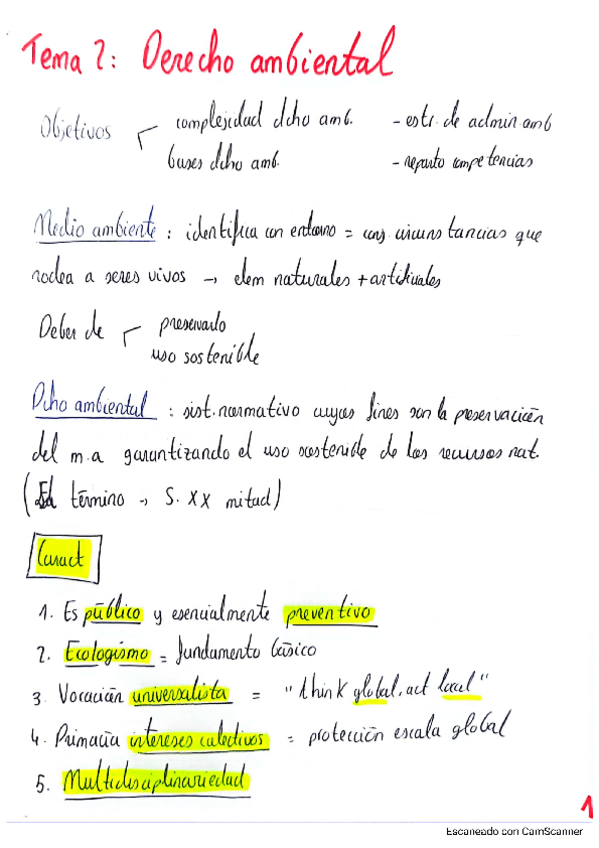 Tema 2: Derecho ambiental
Objetivos
complejidad dcho amb. - estr. de admin amb
bases dcho amb. - reparto competencias
Medio ambiente : identifica con entorno = conj. circunstancias que
rodea a seres vivos → elem naturales + artificiales
Deber de
preservarlo
uso sostenible
Dcho ambiental : sist. normativo cuyos fines son la preservación
del m.a garantizando el uso sostenible de los recursos nat.
(El término → S. XX mitad)
Caract
1. Es público y esencialmente preventivo
2. Ecologismo = fundamento básico
3. Vocación universalista = "think global, act local"
4. Primacía intereses colectivos = protección escala global
5. Multidisciplinariedad
1
Escaneado con CamScanner